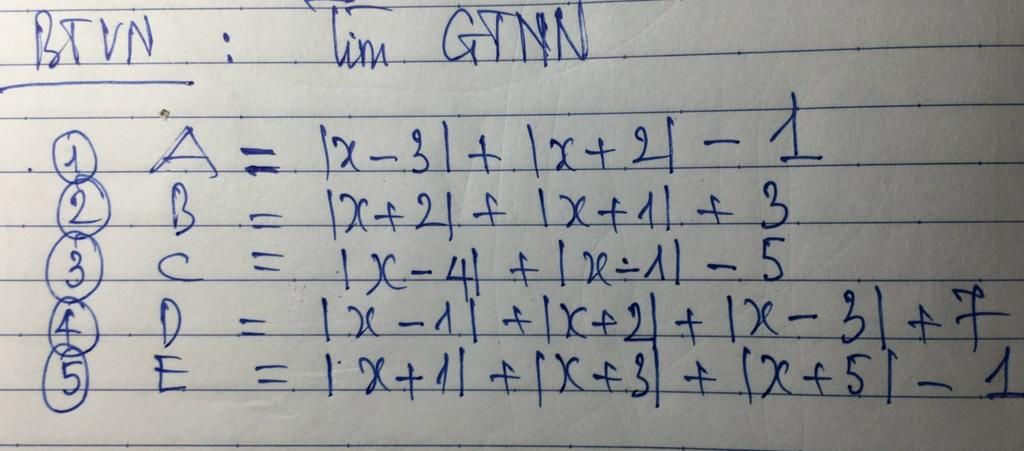 BTVN : Tìm GTNN
① A = |x - 3| + |x + 2| - 1
② B = |x + 2| + |x + 1| + 3
③ C = |x - 4| + |x - 1| - 5
④ D = |x - 1| + |x + 2| + |x - 3| + 7
⑤ E = |x + 1| + |x + 3| + |x + 5| - 1